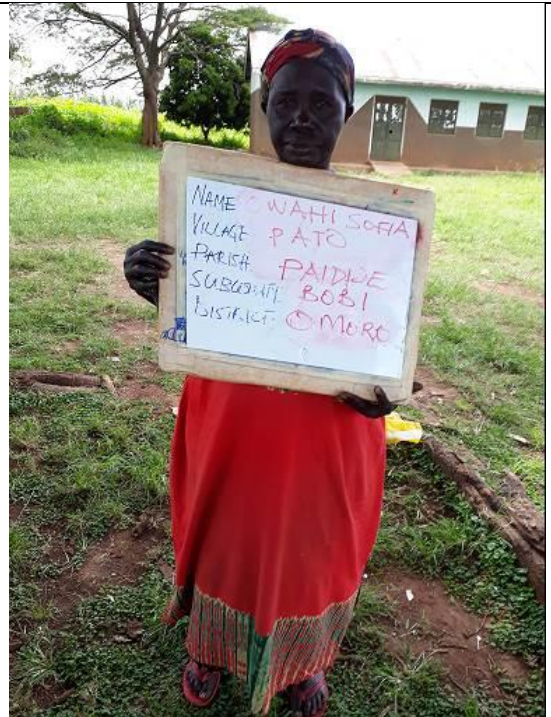 NAME OWAHI SOFIA
VILLAGE PATO
PARISH PAIDWE
SUBCOUNTY BOBI
DISTRICT: OMORO